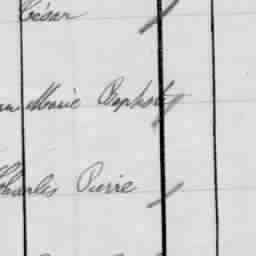 César
Marie Baptist
Charles Pierre